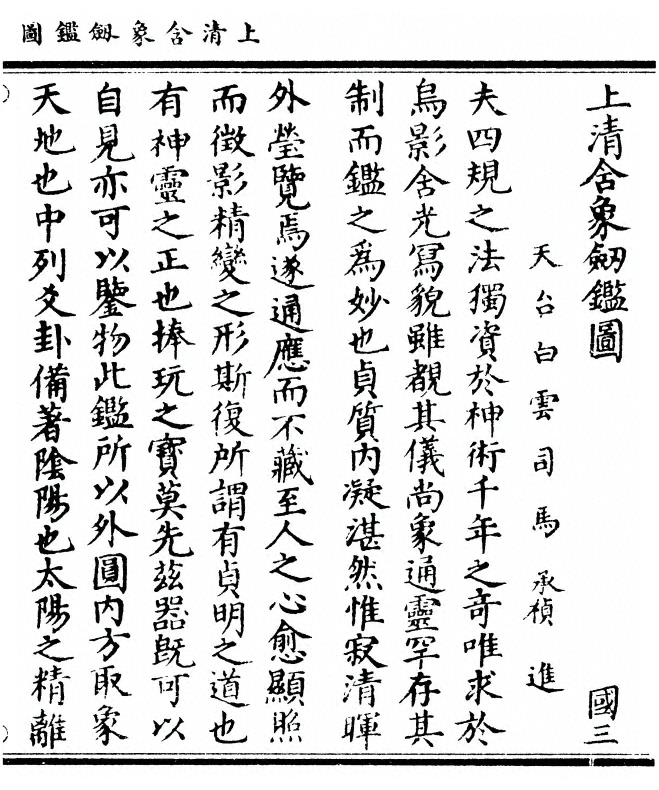 上清含象劔鑑圖
上清含象劔鑑圖
國三
天台白雲司馬承禎進
夫四規之法獨資於神術千年之奇唯求於
烏影含光冩貌雖覩其儀尚象通靈罕存其
制而鑑之爲妙也貞質内凝湛然惟寂清暉
外瑩覽焉遂通應而不藏至人之心愈顯照
而徵影精變之形斯復所謂有貞明之道也
有神靈之正也捧玩之寶莫先兹器旣可以
自見亦可以鑒物此鑑所以外圓内方取象
天地也中列爻卦備著陰陽也太陽之精離